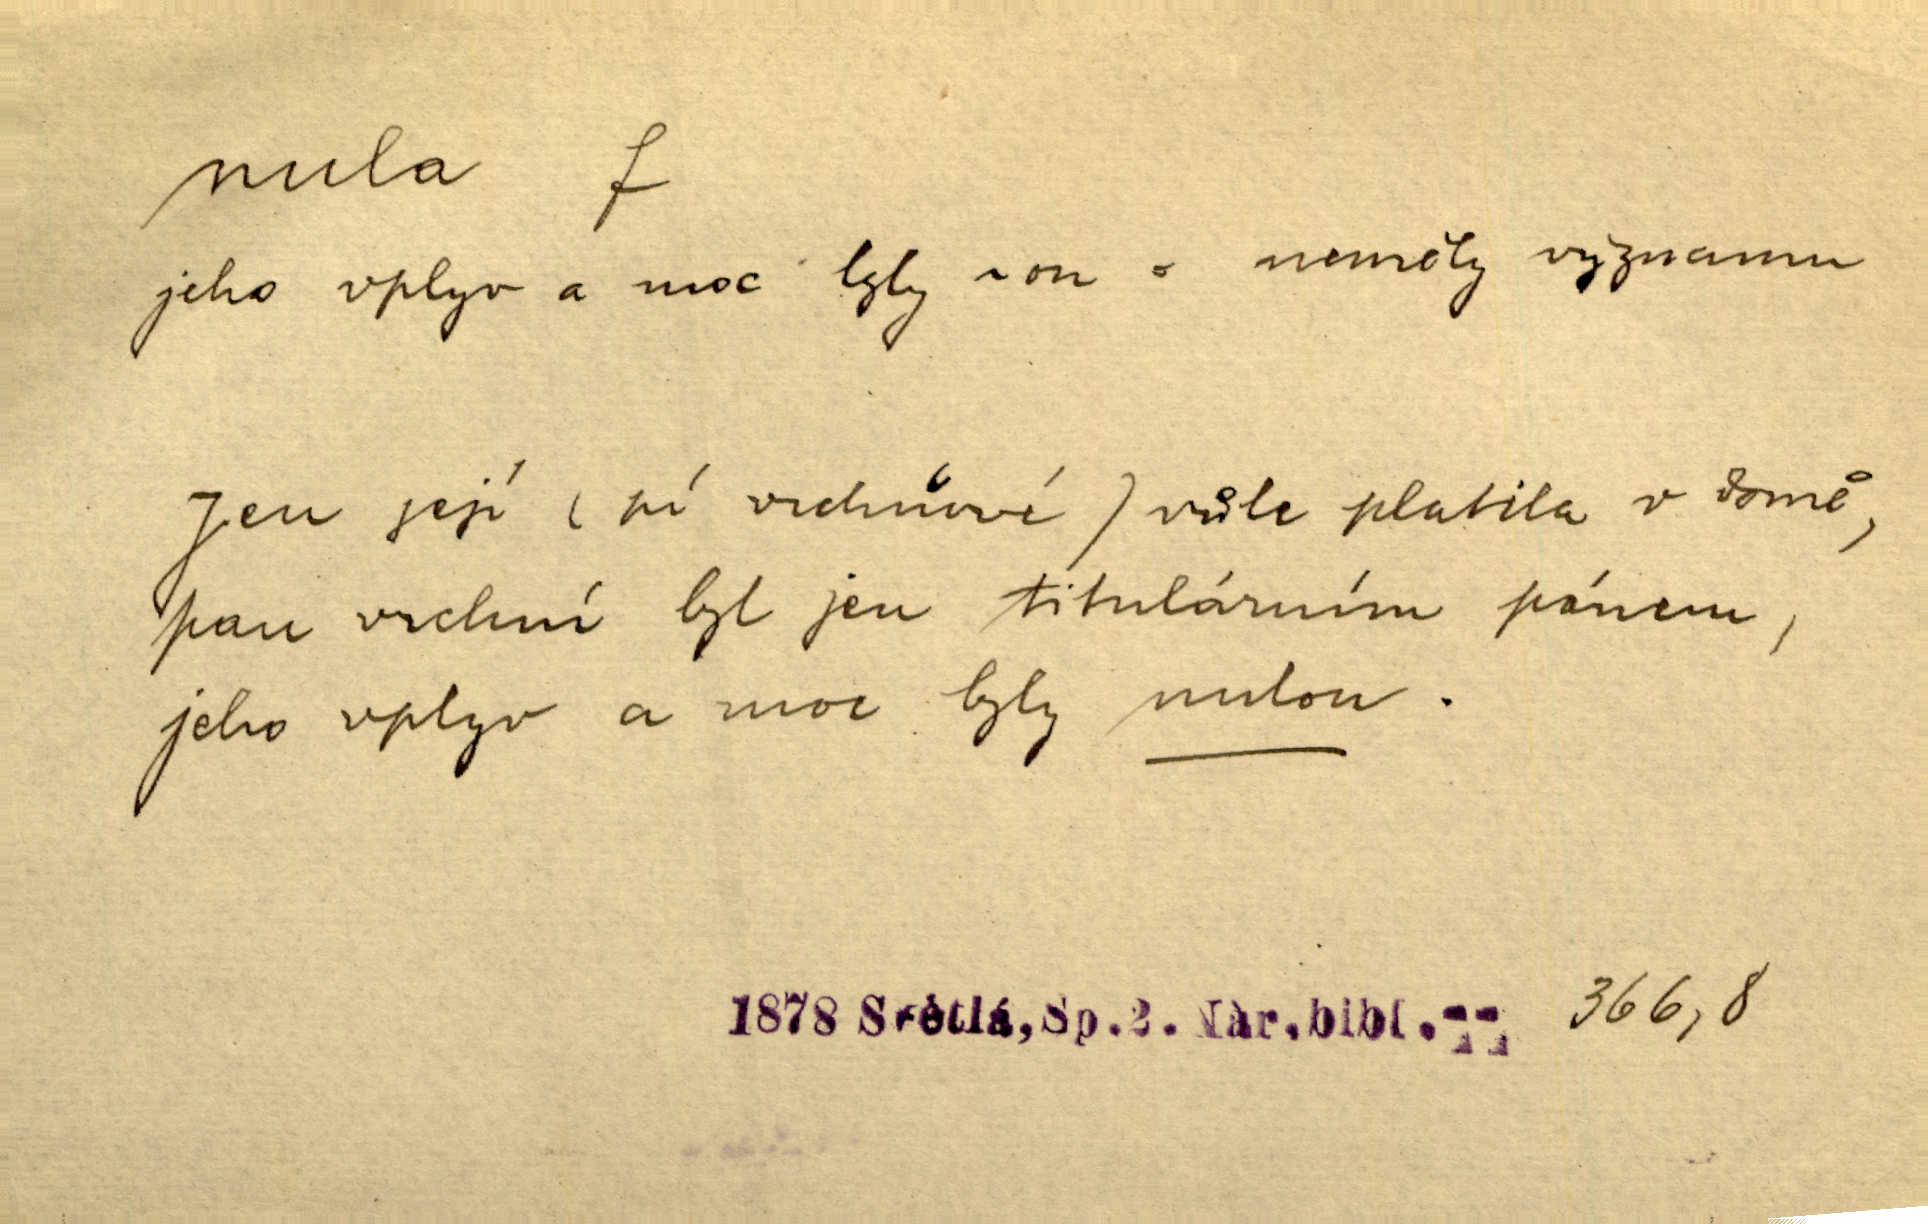 nula f
jeho vplyv a moc byly ~ou = neměly významu
Jen její (pí vrchnové) vůle platila v domě,
pan vrchní byl jen titulárním pánem,
jeho vplyv a moc byly nulou.
1878 Světlá, Sp.2. Nár.bibl. 366,8